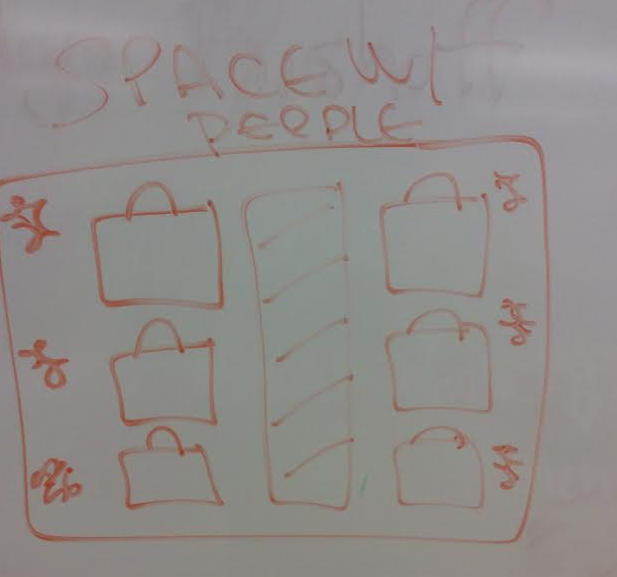 SPACE W/
PEOPLE